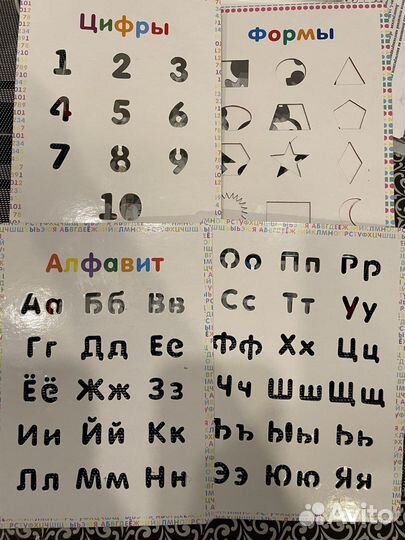 Цифры
1 2 3
4 5 6
7 8 9
10
Формы
Алфавит
Аа Бб Вв
Гг Дд Ее
Ёё Жж Зз
Ии Йй Кк
Лл Мм Нн
Оо Пп Рр
Сс Тт Уу
Фф Хх Цц
Чч Шш Щщ
Ъъ Ыы Ьь
Ээ Юю Яя
Avito